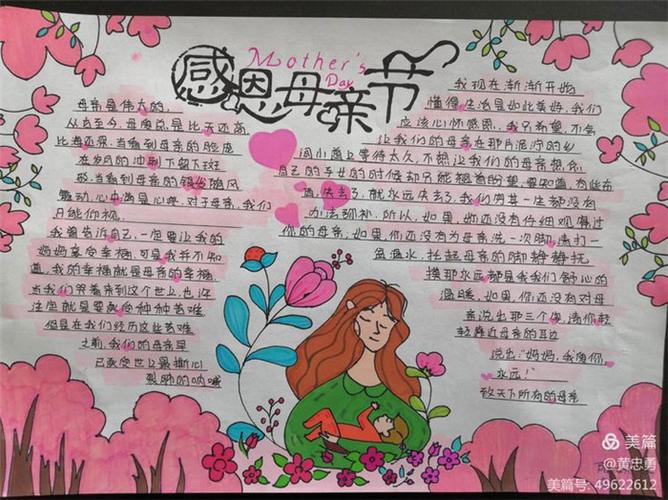 Mother's
Day
感恩母亲节
母亲是伟大的,
从古至今,母爱总是比天还高,
比海还深,当看到母亲的脸庞
在岁月的冲刷下留下斑
驳,当看到母亲的银发随风
飘动,心中满是心疼,对于母亲,我们
只能仰视,
我曾告诉自己,一定要让我的
妈妈享受幸福,可是我并不知
道,我的幸福就是母亲的幸福,
当我们哭着来到这个世上,也许
注定就是要承受种种苦难,
但是在我们经历这些苦难
之前,我们的母亲早
已承受世上最撕心
裂肺的呐喊
我现在渐渐开始
懂得生活是如此美好,我们
应该心怀感恩,我只希望,不要
让我们的母亲在那片泥泞的乡
间小道上等待太久,不想让我们的母亲想念
自己的子女的时候却只能翘首盼望,要知道,有些东
西,失去了,就永远失去了,我们用其一生都没有
办法弥补,所以,如果,你还没有仔细观看过
你的母亲,如果,你还没有为母亲洗一次脚,请打一
盆温水,托起母亲的脚静静抚
摸那永远都是我们舒心的
温暖,如果,你还没有对母
亲说出那三个字,请你轻
轻靠近母亲的耳边
说出:“妈妈,我爱你,
永远!”
致天下所有的母亲
美篇
@黄忠勇
美篇号: 49622612